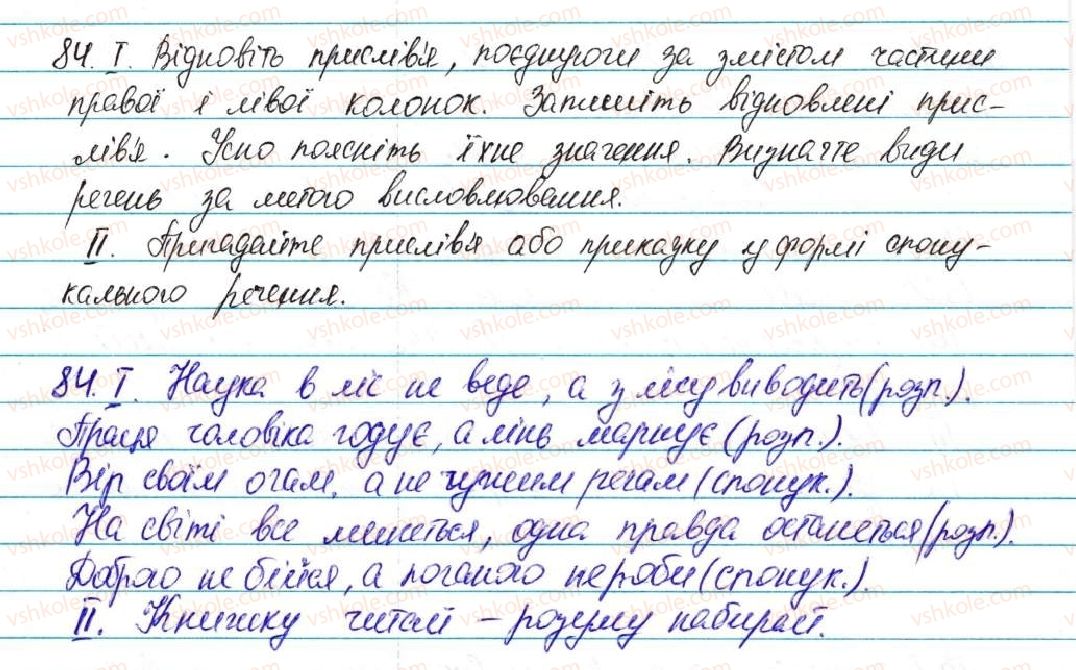 84. I. Відновіть прислів'я, поєднуючи за змістом частини
правої і лівої колонок. Запишіть відновлені прис-
лів'я. Усно поясніть їхнє значення. Визначте види
речень за метою висловлювання.
II. Пригадайте прислів'я або приказку у формі спону-
кального речення.
84. I. Наука в ліс не веде, а з лісу виводить (розп.).
Праця чоловіка годує, а лінь марнує (розп.).
Вір своїм очам, а не чужим речам (спонук.).
На світі все минеться, одна правда останеться (розп.).
Доброго не бійся, а поганого не роби (спонук.).
II. Книжку читай – розуму набирай.